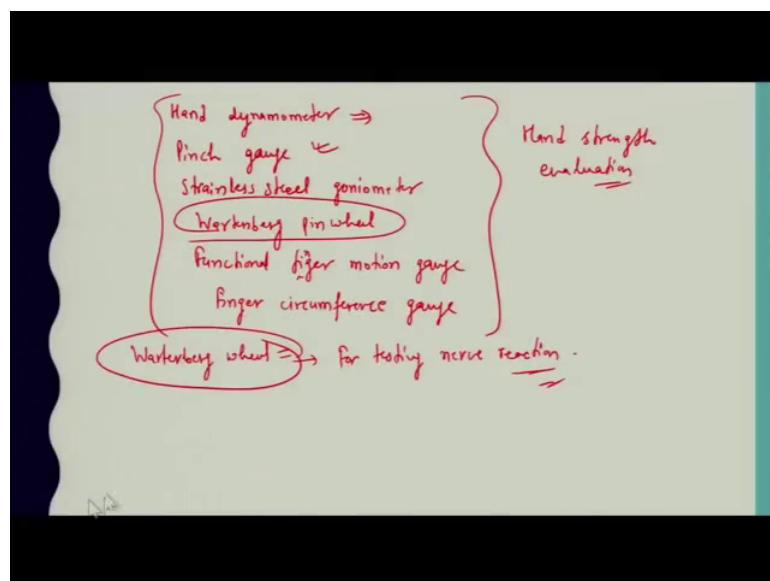 Hand dynamometer ⇒
Pinch gauge
Stainless steel goniometer
Wartenberg pin wheel
Functional finger motion gauge
finger circumference gauge
Hand strength
evaluation
Warterberg wheel → for testing nerve reaction.